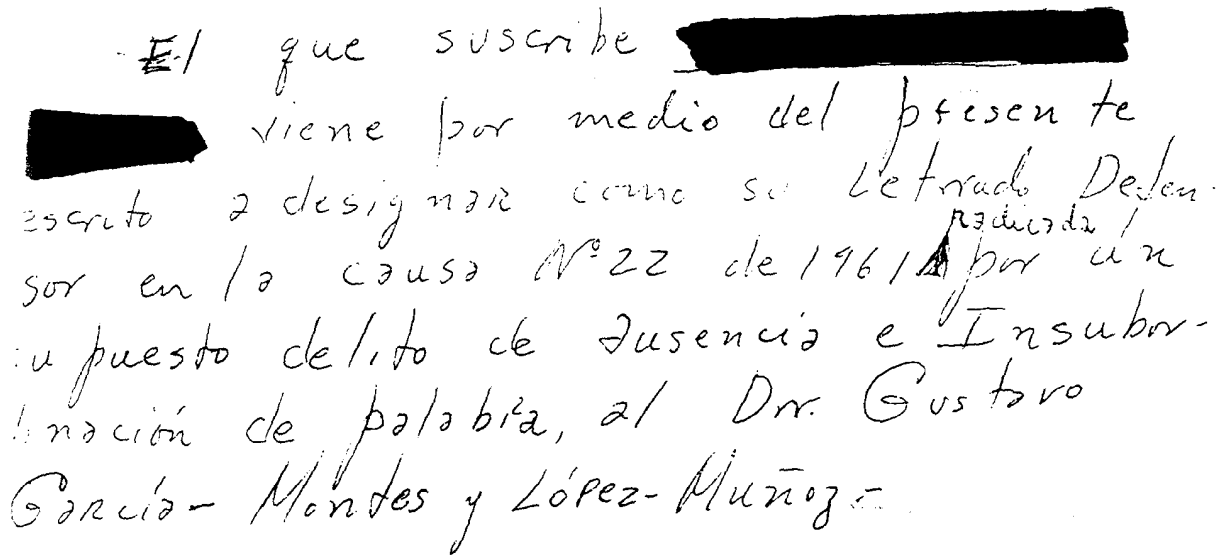 El que suscribe
viene por medio del presente
escrito a designar como su Letrado Defen-
radicada
sor en la causa Nº 22 de 1961 por un
supuesto delito de ausencia e Insubor-
dinación de palabra, al Dr. Gustavo
García- Montes y López-Muñoz-